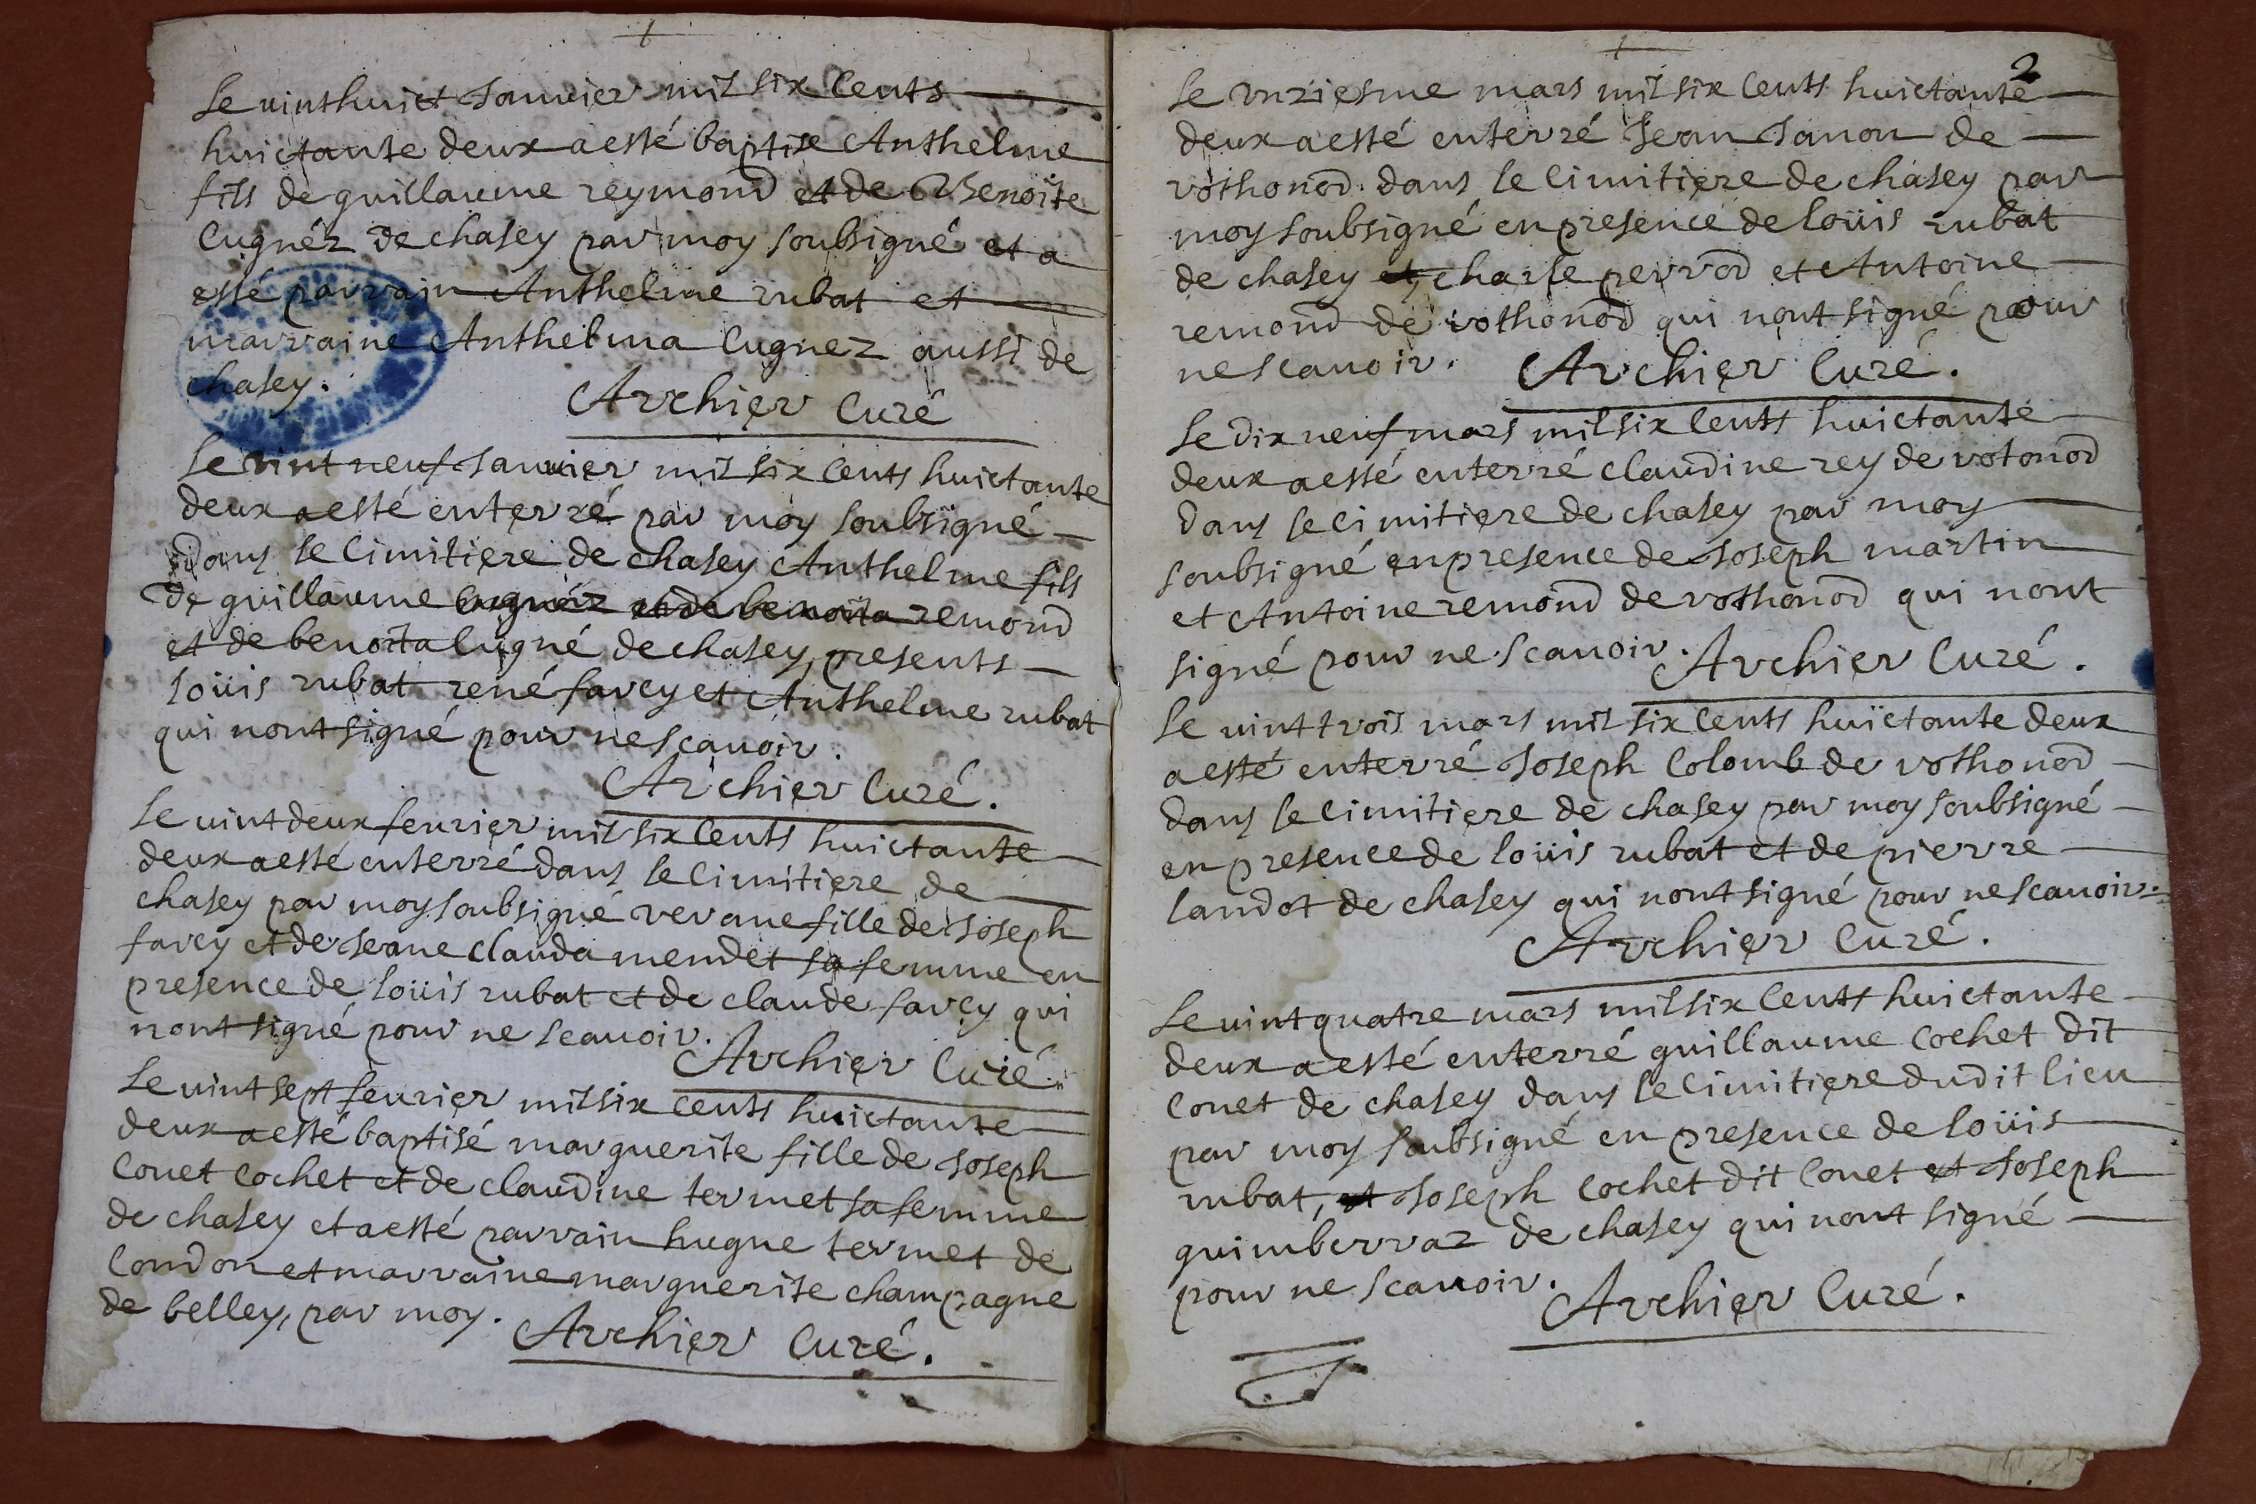 Le vinthuict Januier mil six Cents
huictante deux a esté baptise Anthelme
fils de guillaume reymond et de Benoite
Cugnéz de chasey par moy soubsigné et a
esté parrain Anthelme rubat et
marraine Anthelma Cugnez aussi de
chasey.
Archier Curé
Le vint neuf Januier mil six Cents huictante
deux a esté enterré par moy soubsigné
dans le Cimitiere de chasey Anthelme fils
de guillaume remond
et de benoita Cugné de chasey, presents
Loüis rubat rené farcy et Anthelme rubat
qui nont signé pour ne scauoir.
Archier Curé.
Le vint deux feurier mil six Cents huictante
deux a esté enterré dans le Cimitiere de
chasey par moy soubsigné verane fille de Joseph
farcy et de Jeane clauda mendet sa femme en
presence de Loüis rubat et de claude farcy qui
nont signé pour ne scauoir.
Archier Curé.
Le vint sept feurier mil six cents huictante
deux a esté baptisé marguerite fille de Joseph
Couet Cochet et de claudine termet sa femme
de chasey et a esté parrain hugue termet de
Condon et marraine marguerite champagne
de belley, par moy.
Archier Curé.
2
Le vnziesme mars mil six Cents huictante
deux a esté enterré Jean Janon de
vothonod dans le Cimitiere de chasey par
moy soubsigné en presence de Loüis rubat
de chasey et, charle perrod et Antoine
remond de vothonod qui nont signé pour
ne scauoir.
Archier Curé.
Le dix neuf mars mil six Cents huictante
deux a esté enterré claudine rey de votonod
dans le Cimitiere de chasey par moy
soubsigné en presence de Joseph martin
et Antoine remond de vothonod qui nont
signé pour ne scauoir.
Archier Curé.
Le vint trois mars mil six Cents huictante deux
a esté enterré Joseph Colomb de vothonod
dans le Cimitiere de chasey par moy soubsigné
en presence de Loüis rubat et de pierre
Landot de chasey qui nont signé pour ne scauoir.
Archier Curé.
Le vint quatre mars mil six Cents huictante
deux a esté enterré guillaume Cochet dit
Couet de chasey dans le Cimitiere dudit lieu
par moy soubsigné en presence de Loüis
rubat, et Joseph Cochet dit Couet et Joseph
guimberraz de chasey qui nont signé
pour ne scauoir.
Archier Curé.